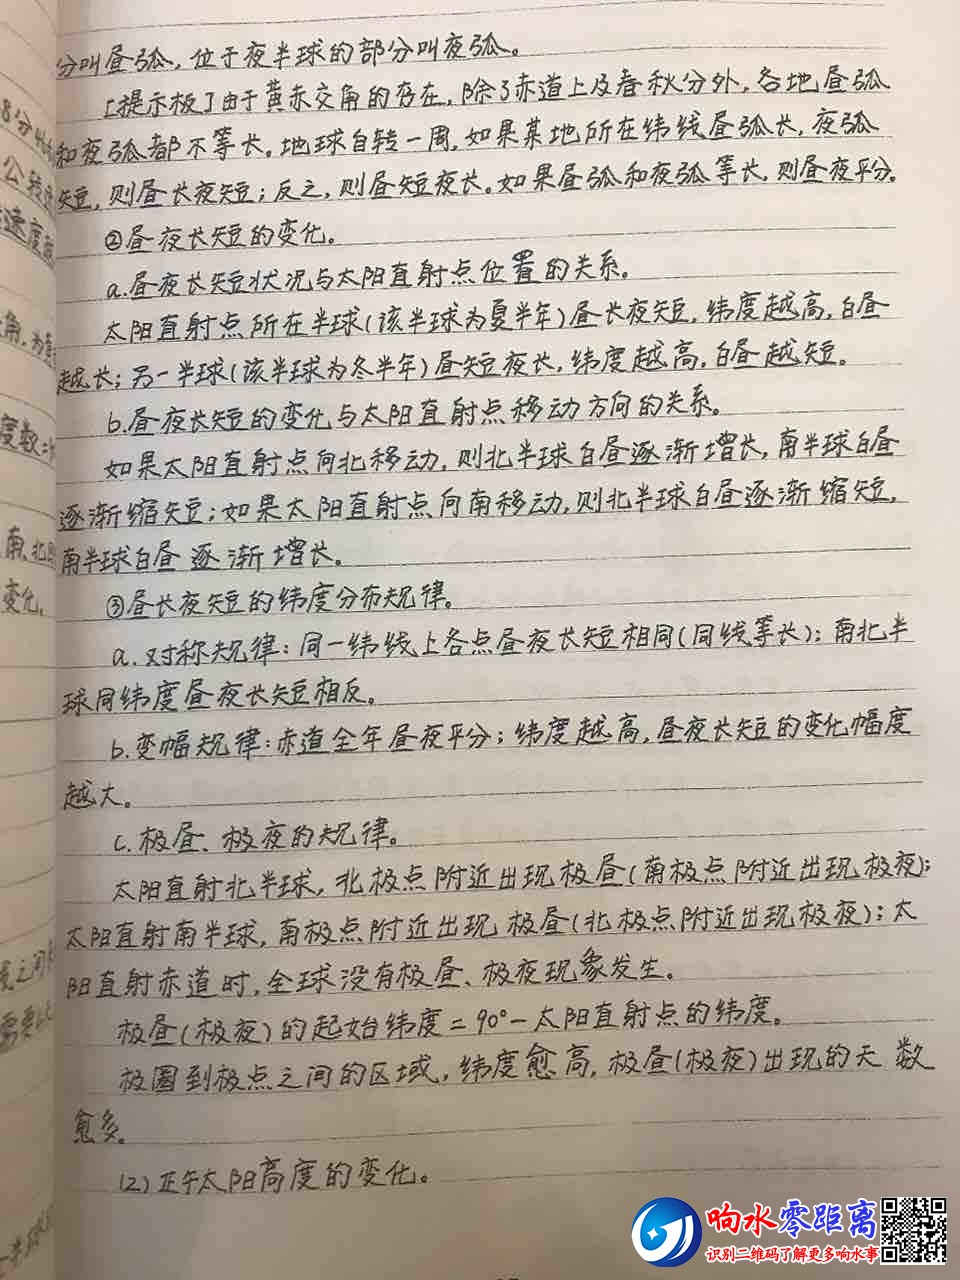 分叫昼弧，位于夜半球的部分叫夜弧。
[提示板]由于黄赤交角的存在，除了赤道上及春秋分外，各地昼弧
和夜弧都不等长。地球自转一周，如果某地所在纬线昼弧长，夜弧
短，则昼长夜短；反之，则昼短夜长。如果昼弧和夜弧等长，则昼夜平分。
②昼夜长短的变化。
a.昼夜长短状况与太阳直射点位置的关系。
太阳直射点所在半球(该半球为夏半年)昼长夜短，纬度越高，白昼
越长；另一半球(该半球为冬半年)昼短夜长，纬度越高，白昼越短。
b.昼夜长短的变化与太阳直射点移动方向的关系。
如果太阳直射点向北移动，则北半球白昼逐渐增长，南半球白昼
逐渐缩短；如果太阳直射点向南移动，则北半球白昼逐渐缩短，
南半球白昼逐渐增长。
③昼长夜短的纬度分布规律。
a.对称规律：同一纬线上各点昼夜长短相同(同线等长)；南北半
球同纬度昼夜长短相反。
b.变幅规律：赤道全年昼夜平分；纬度越高，昼夜长短的变化幅度
越大。
c.极昼、极夜的规律。
太阳直射北半球，北极点附近出现极昼(南极点附近出现极夜)；
太阳直射南半球，南极点附近出现极昼(北极点附近出现极夜)；太
阳直射赤道时，全球没有极昼、极夜现象发生。
极昼(极夜)的起始纬度=90°-太阳直射点的纬度。
极圈到极点之间的区域，纬度愈高，极昼(极夜)出现的天数
愈多。
(2)正午太阳高度的变化。
8分
公转
速度
角，为
度数=
南北回
变化。
之间
需要
响水零距离
识别二维码了解更多响水事